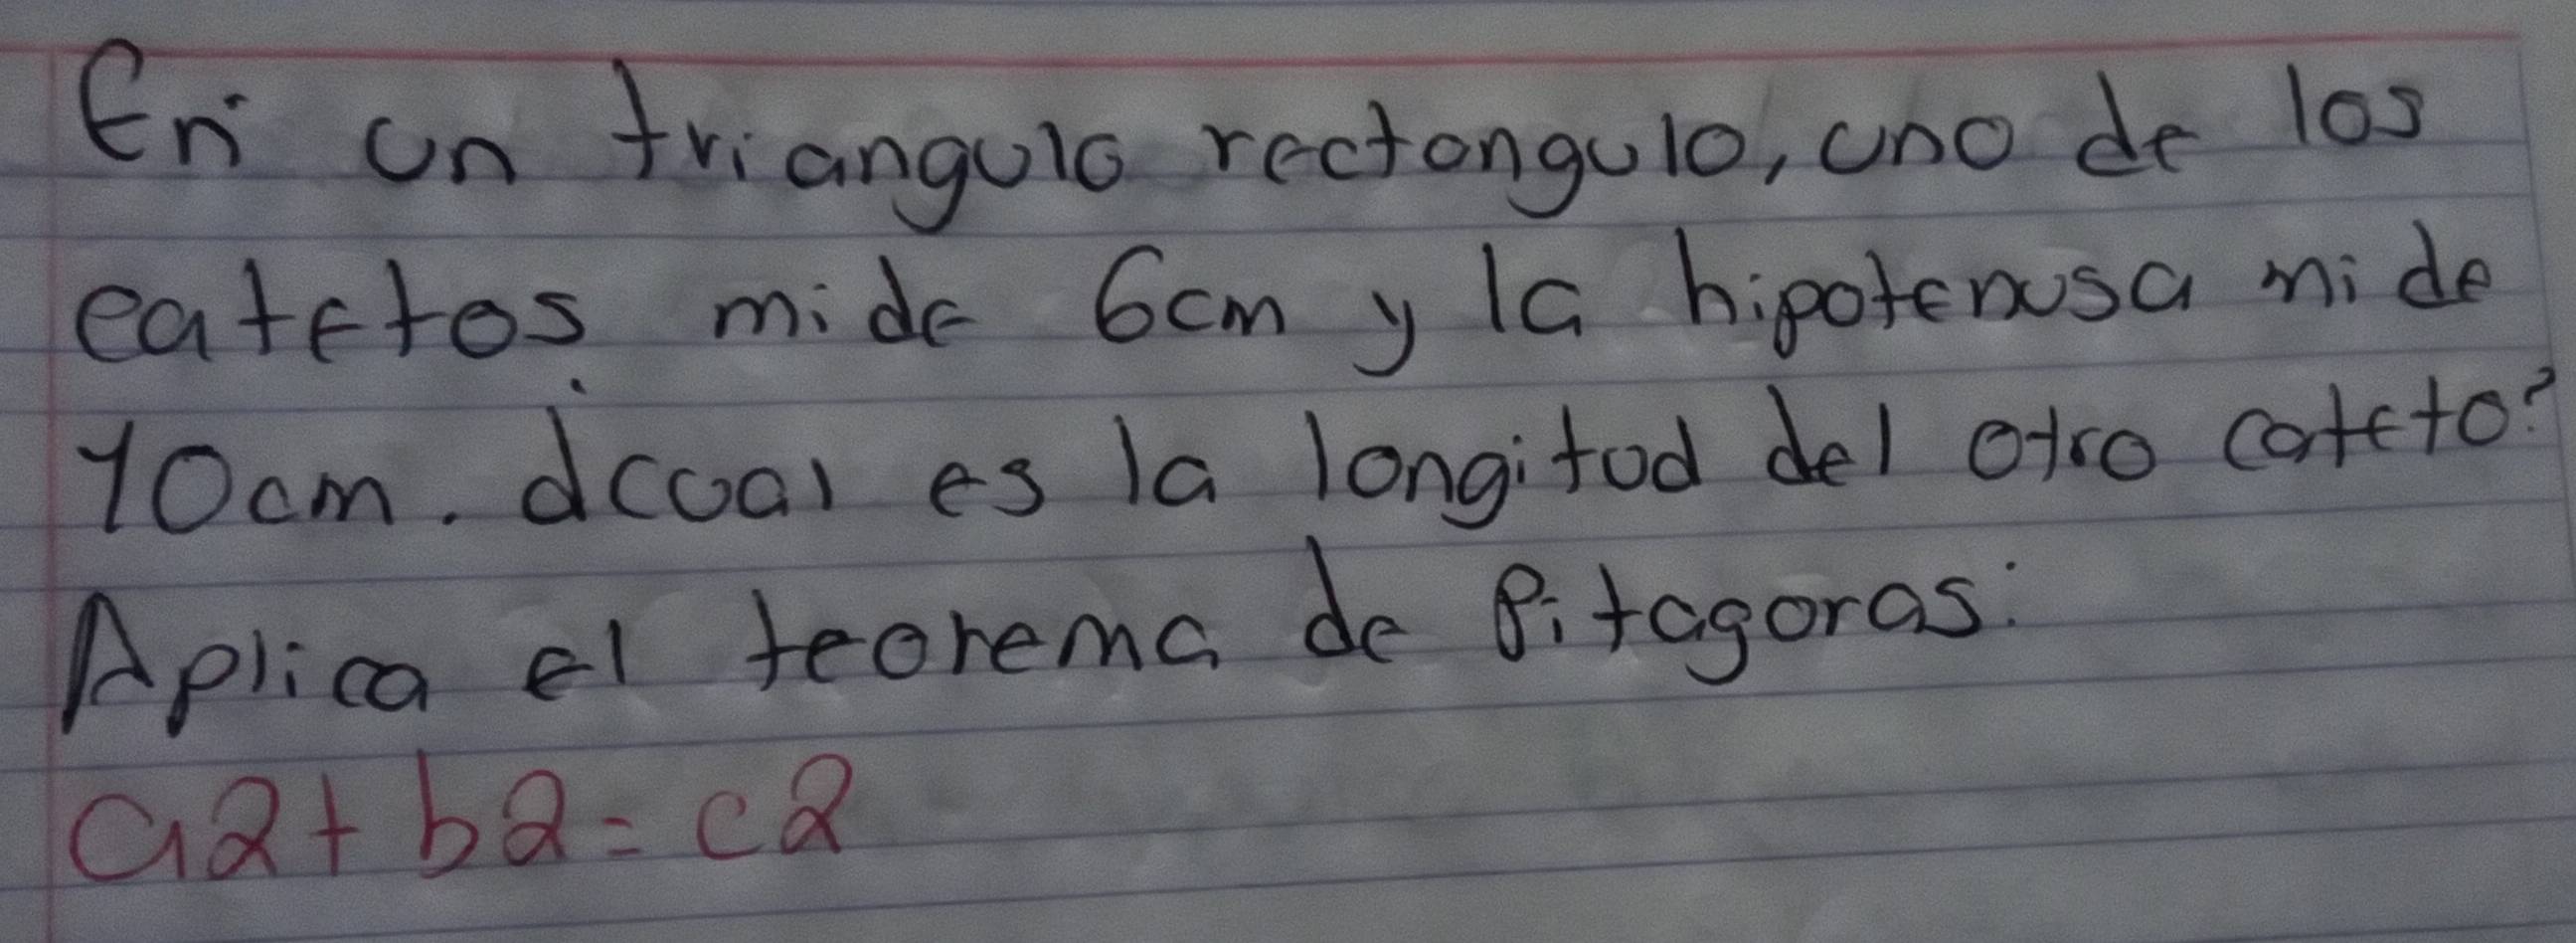 En un triangulo rectongulo, uno de los
catetos mide 6cm y la hipotenusa mide
10cm. ¿cual es la longitud del otro cateto?
Aplica el teorema de Pitagoras:
a2+b2=c2